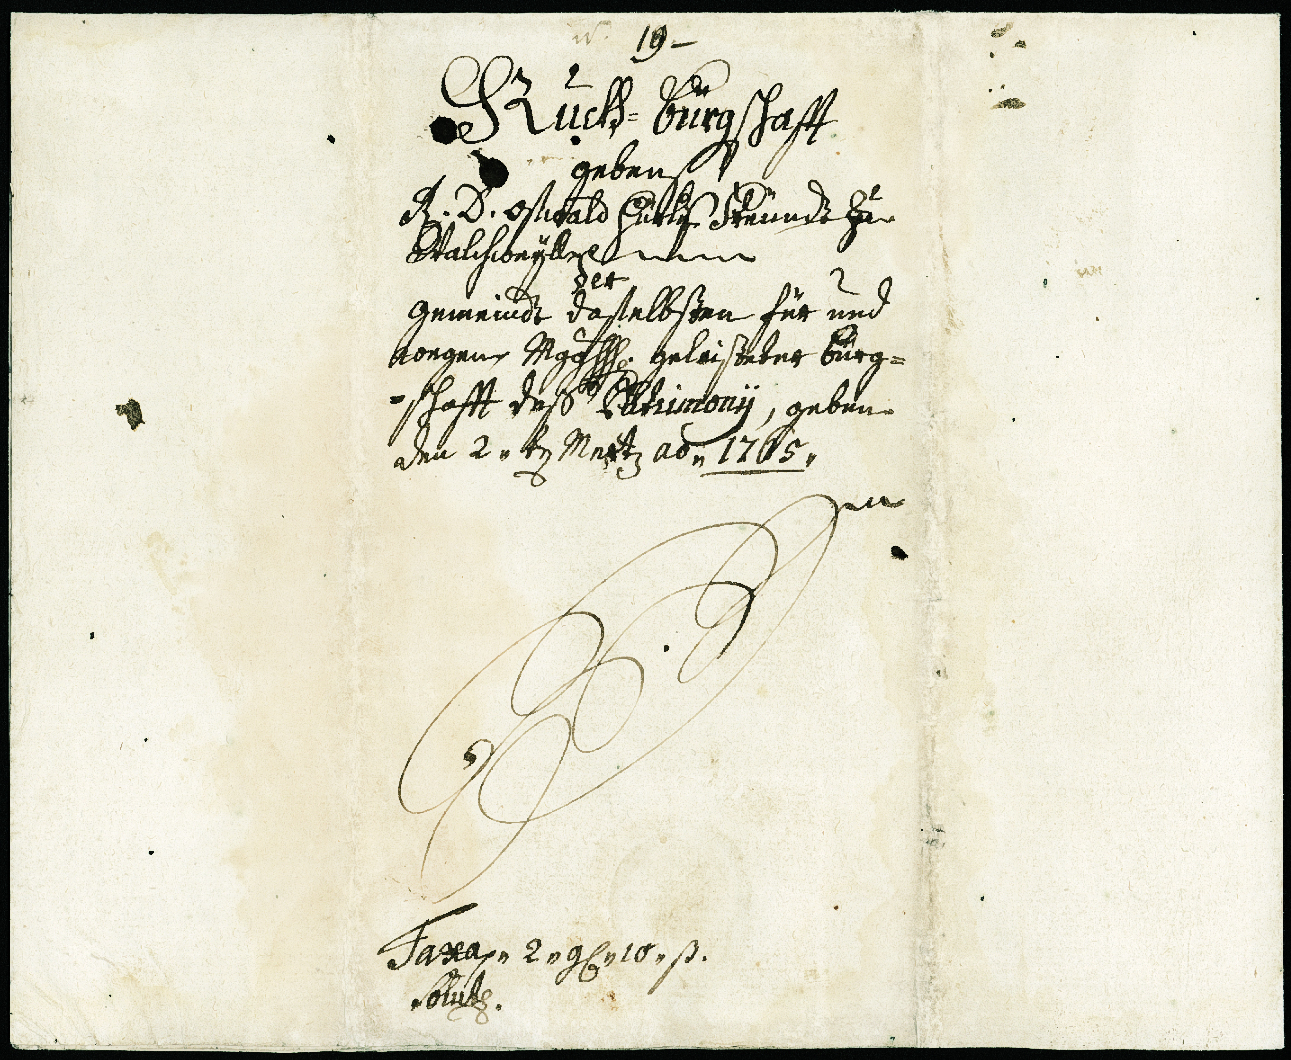 19 –
Rückh-bürgschafft
gebens
R. D. Oswald Hürlis Freündt Zue
Walchweÿll
der
gemeindt daselbsten für und
wegen MggHh. geleisteter bürg=
=schafft deß Patrimonÿ, geben
den 2 ten Mertz ao 1765.
Taxa 2 gl 10 ß.
Solut.